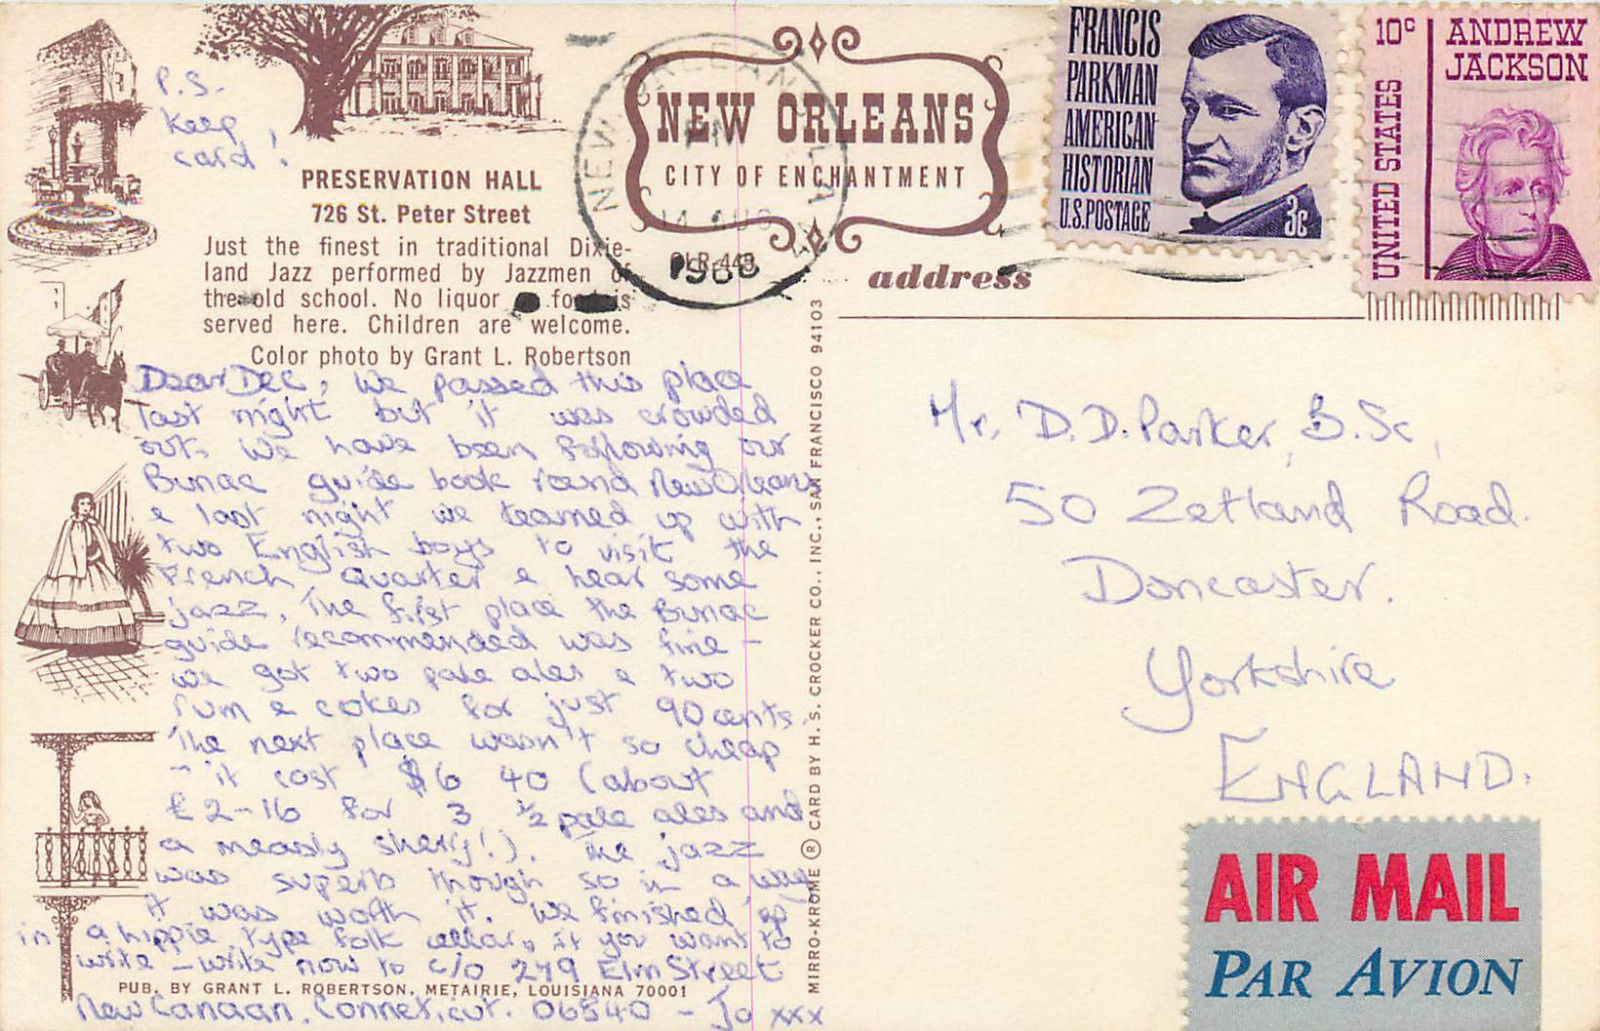 P.S.
Keep
card!
PRESERVATION HALL
726 St. Peter Street
Just the finest in traditional Dixie-
land Jazz performed by Jazzmen of
the old school. No liquor or food is
served here. Children are welcome.
Color photo by Grant L. Robertson
NEW ORLEANS
CITY OF ENCHANTMENT
NEW ORLEANS, LA
PM
14 AUG
1968
FRANCIS
PARKMAN
AMERICAN
HISTORIAN
U.S. POSTAGE
3c
10c
ANDREW
JACKSON
UNITED STATES
address
Dear Dee, We passed this place
last night but it was crowded
out. We have been following our
Bunac guide book round New Orleans
& last night we teamed up with
two English boys to visit the
French Quarter & hear some
jazz. The first place the Bunac
guide recommended was fine –
we got two pale ales & two
rum & cokes for just 90 cents.
The next place wasn't so cheap
– it cost $6 40 (about
£2-16 for 3 ½ pale ales and
a measly sherry!). The jazz
was superb though so in a way
it was worth it. We finished up
in a hippie type folk cellar. If you want to
write – write now to c/o 279 Elm Street
PUB. BY GRANT L. ROBERTSON, METAIRIE, LOUISIANA 70001
New Canaan, Connecticut. 06840 – Jo xxx
MIRRO-KROME ® CARD BY H. S. CROCKER CO., INC., SAN FRANCISCO 94103
Mr. D. D. Parker, B.Sc,
50 Zetland Road.
Doncaster.
Yorkshire
ENGLAND.
AIR MAIL
PAR AVION